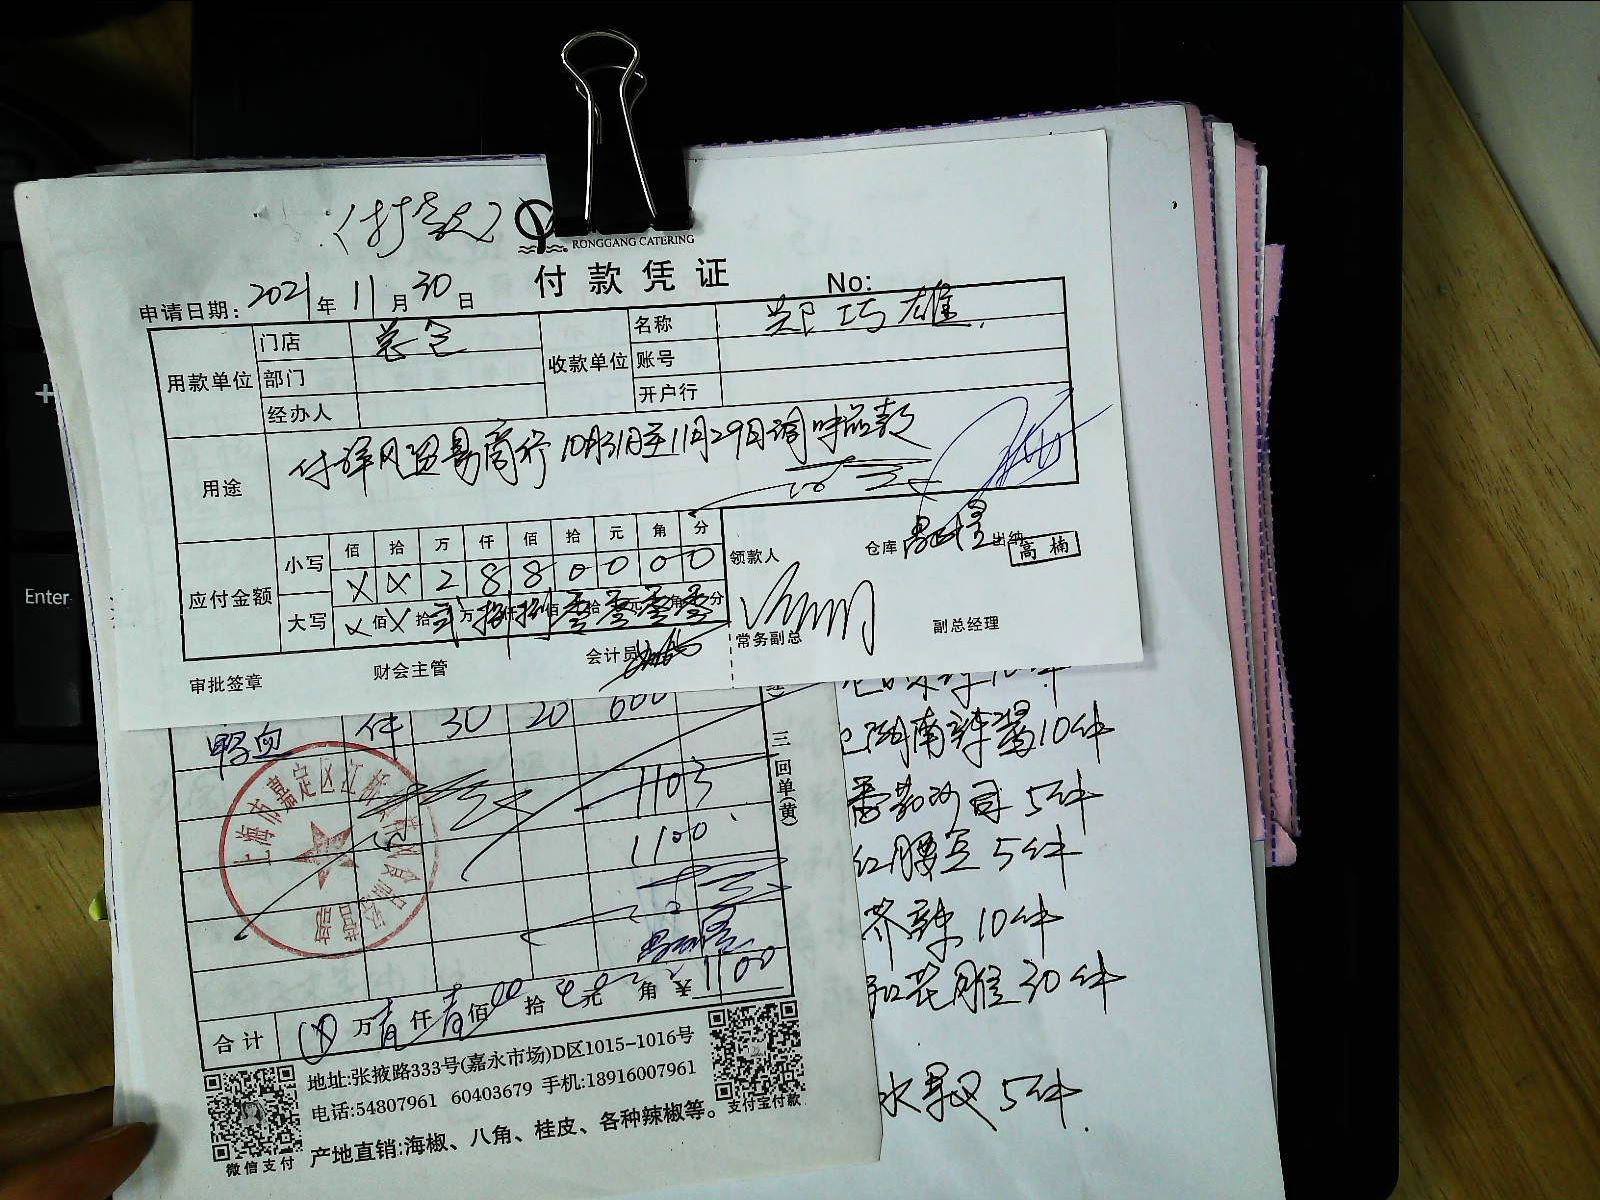 (打款)
RONGGANG CATERING
付款凭证
No:
申请日期: 2021 年 11 月 30 日
用款单位 门店 总仓 收款单位 名称 郑巧雄
部门 账号
经办人 开户行
用途 付洋风贸易商行10月31日至11月29日调味品款
应付金额 小写 佰 拾 万 仟 佰 拾 元 角 分
X X 2 8 8 0 0 0 0
大写 X 佰 X 拾 贰 万 捌 仟 捌 佰 零 拾 零 元 零 角 零 分
领款人 仓库 出纳 高楠
常务副总 副总经理
审批签章 财会主管 会计员
鸭血 件 30 20 600
1103
1100
三回单(黄)
上海市嘉定区江桥
经营部
合计 万 仟 佰 拾 元 角 ¥ 1100
地址:张掖路333号(嘉永市场)D区1015-1016号
电话:54807961 60403679 手机:18916007961
产地直销:海椒、八角、桂皮、各种辣椒等。
微信支付
支付宝付款
湖南辣酱10件
5件
红腰豆 5件
芥辣 10件
花雕 30件
水果叉 5件
Enter